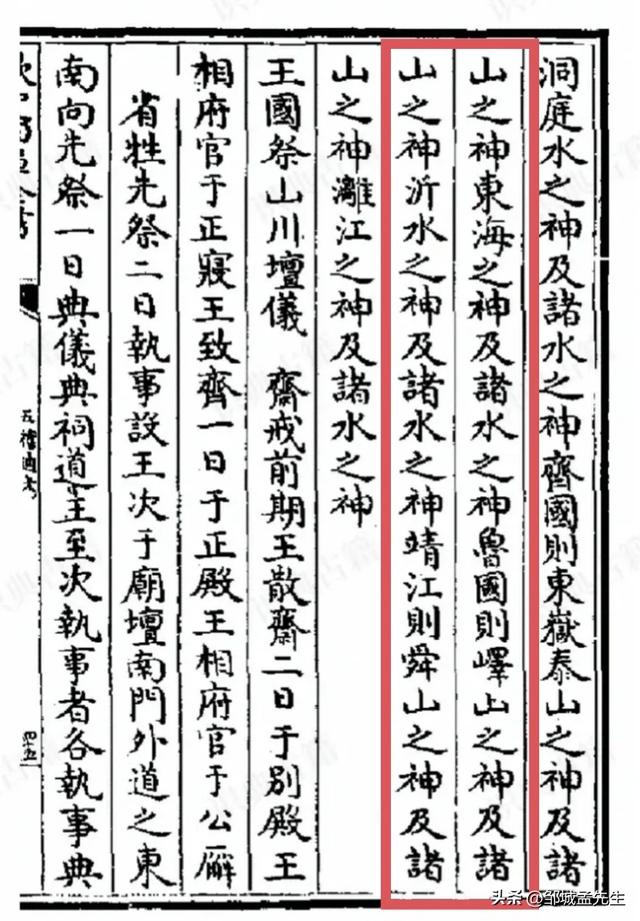 洞庭水之神及諸水之神齊國則東嶽泰山之神及諸
山之神東海之神及諸水之神魯國則嶧山之神及諸
山之神沂水之神及諸水之神靖江則舜山之神及諸
山之神灕江之神及諸水之神
王國祭山川壇儀 齋戒前期王散齋二日于別殿王
相府官于正寢王致齊一日于正殿王相府官于公廨
省牲先祭二日執事設王次于廟壇南門外道之東
南向先祭一日典儀典祠道王至次執事者各執事典
四五
头条 @邹城孟先生